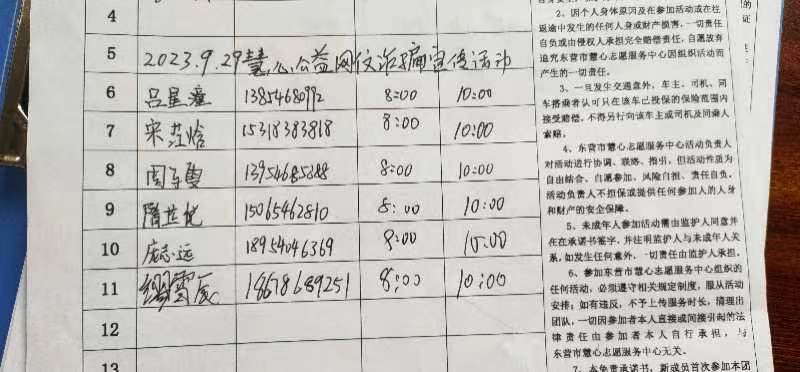 4
5 2023.9.29慧心公益网络诈骗宣传活动
6 吕星莹 13854680992 8:00 10:00
7 宋 15318383818 8:00 10:00
8 周 13954685288 8:00 10:00
9 隋 15065462810 8:00 10:00
10 庞志远 18954046369 8:00 10:00
11 18678689251 8:00 10:00
12
13
2、因个人身体原因及在参加活动或在往
返途中发生的任何人身或财产损害,一切责任
自负或由侵权人承担完全赔偿责任,自愿放弃
追究东营市慧心志愿服务中心因组织活动而
产生的一切责任。
3、一旦发生交通意外,车主、司机、同
车搭乘者认可只在该车已投保的保险范围内
接受赔偿,不得另行向该车主或司机及同乘人
索赔。
4、东营市慧心志愿服务中心活动负责人
对活动进行协调、联络、指引,但活动性质为
自由结合、自愿参加、风险自担、责任自负,
活动负责人不担保或提供任何参加人的人身
和财产的安全保障。
5、未成年人参加活动需由监护人同意并
在在承诺书签字,并注明监护人与未成年人关
系,如发生任何意外,一切责任由监护人承担。
6、参加东营市慧心志愿服务中心组织的
任何活动,必须遵守相关规定制度,服从活动
安排;如有违反,不予上传服务时长,清理出
团队,一切因参加者本人直接或间接引起的法
律责任由参加者本人自行承担,与
东营市慧心志愿服务中心无关。
7、本免责承诺书,新成员首次参加本团